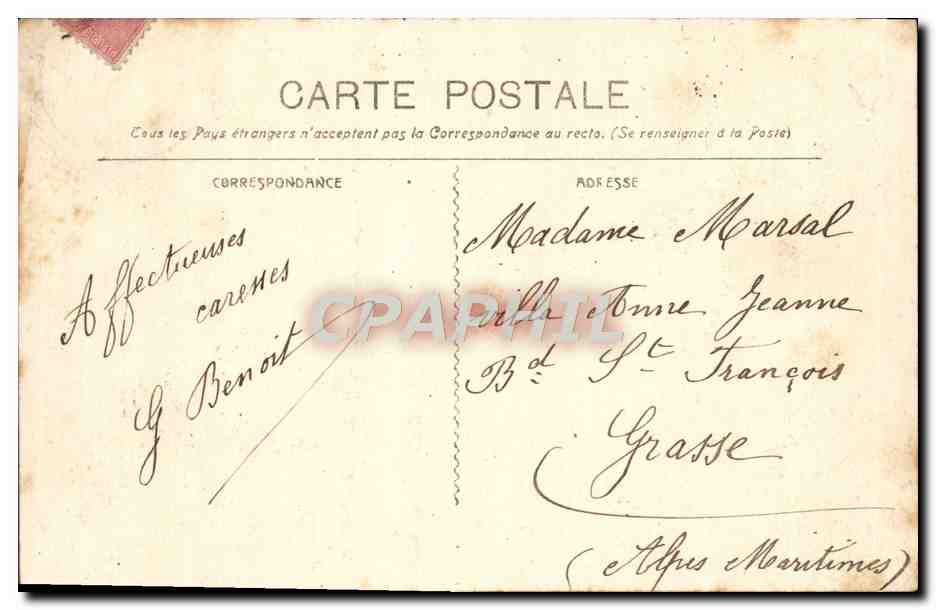 CARTE POSTALE
Tous les Pays étrangers n'acceptent pas la Correspondance au recto. (Se renseigner à la Poste)
CORRESPONDANCE
Affectueuses
caresses
G Benoit
ADRESSE
Madame Marsal
villa Anne Jeanne
Bd St François
Grasse
(Alpes Maritimes)
CPAPHIL